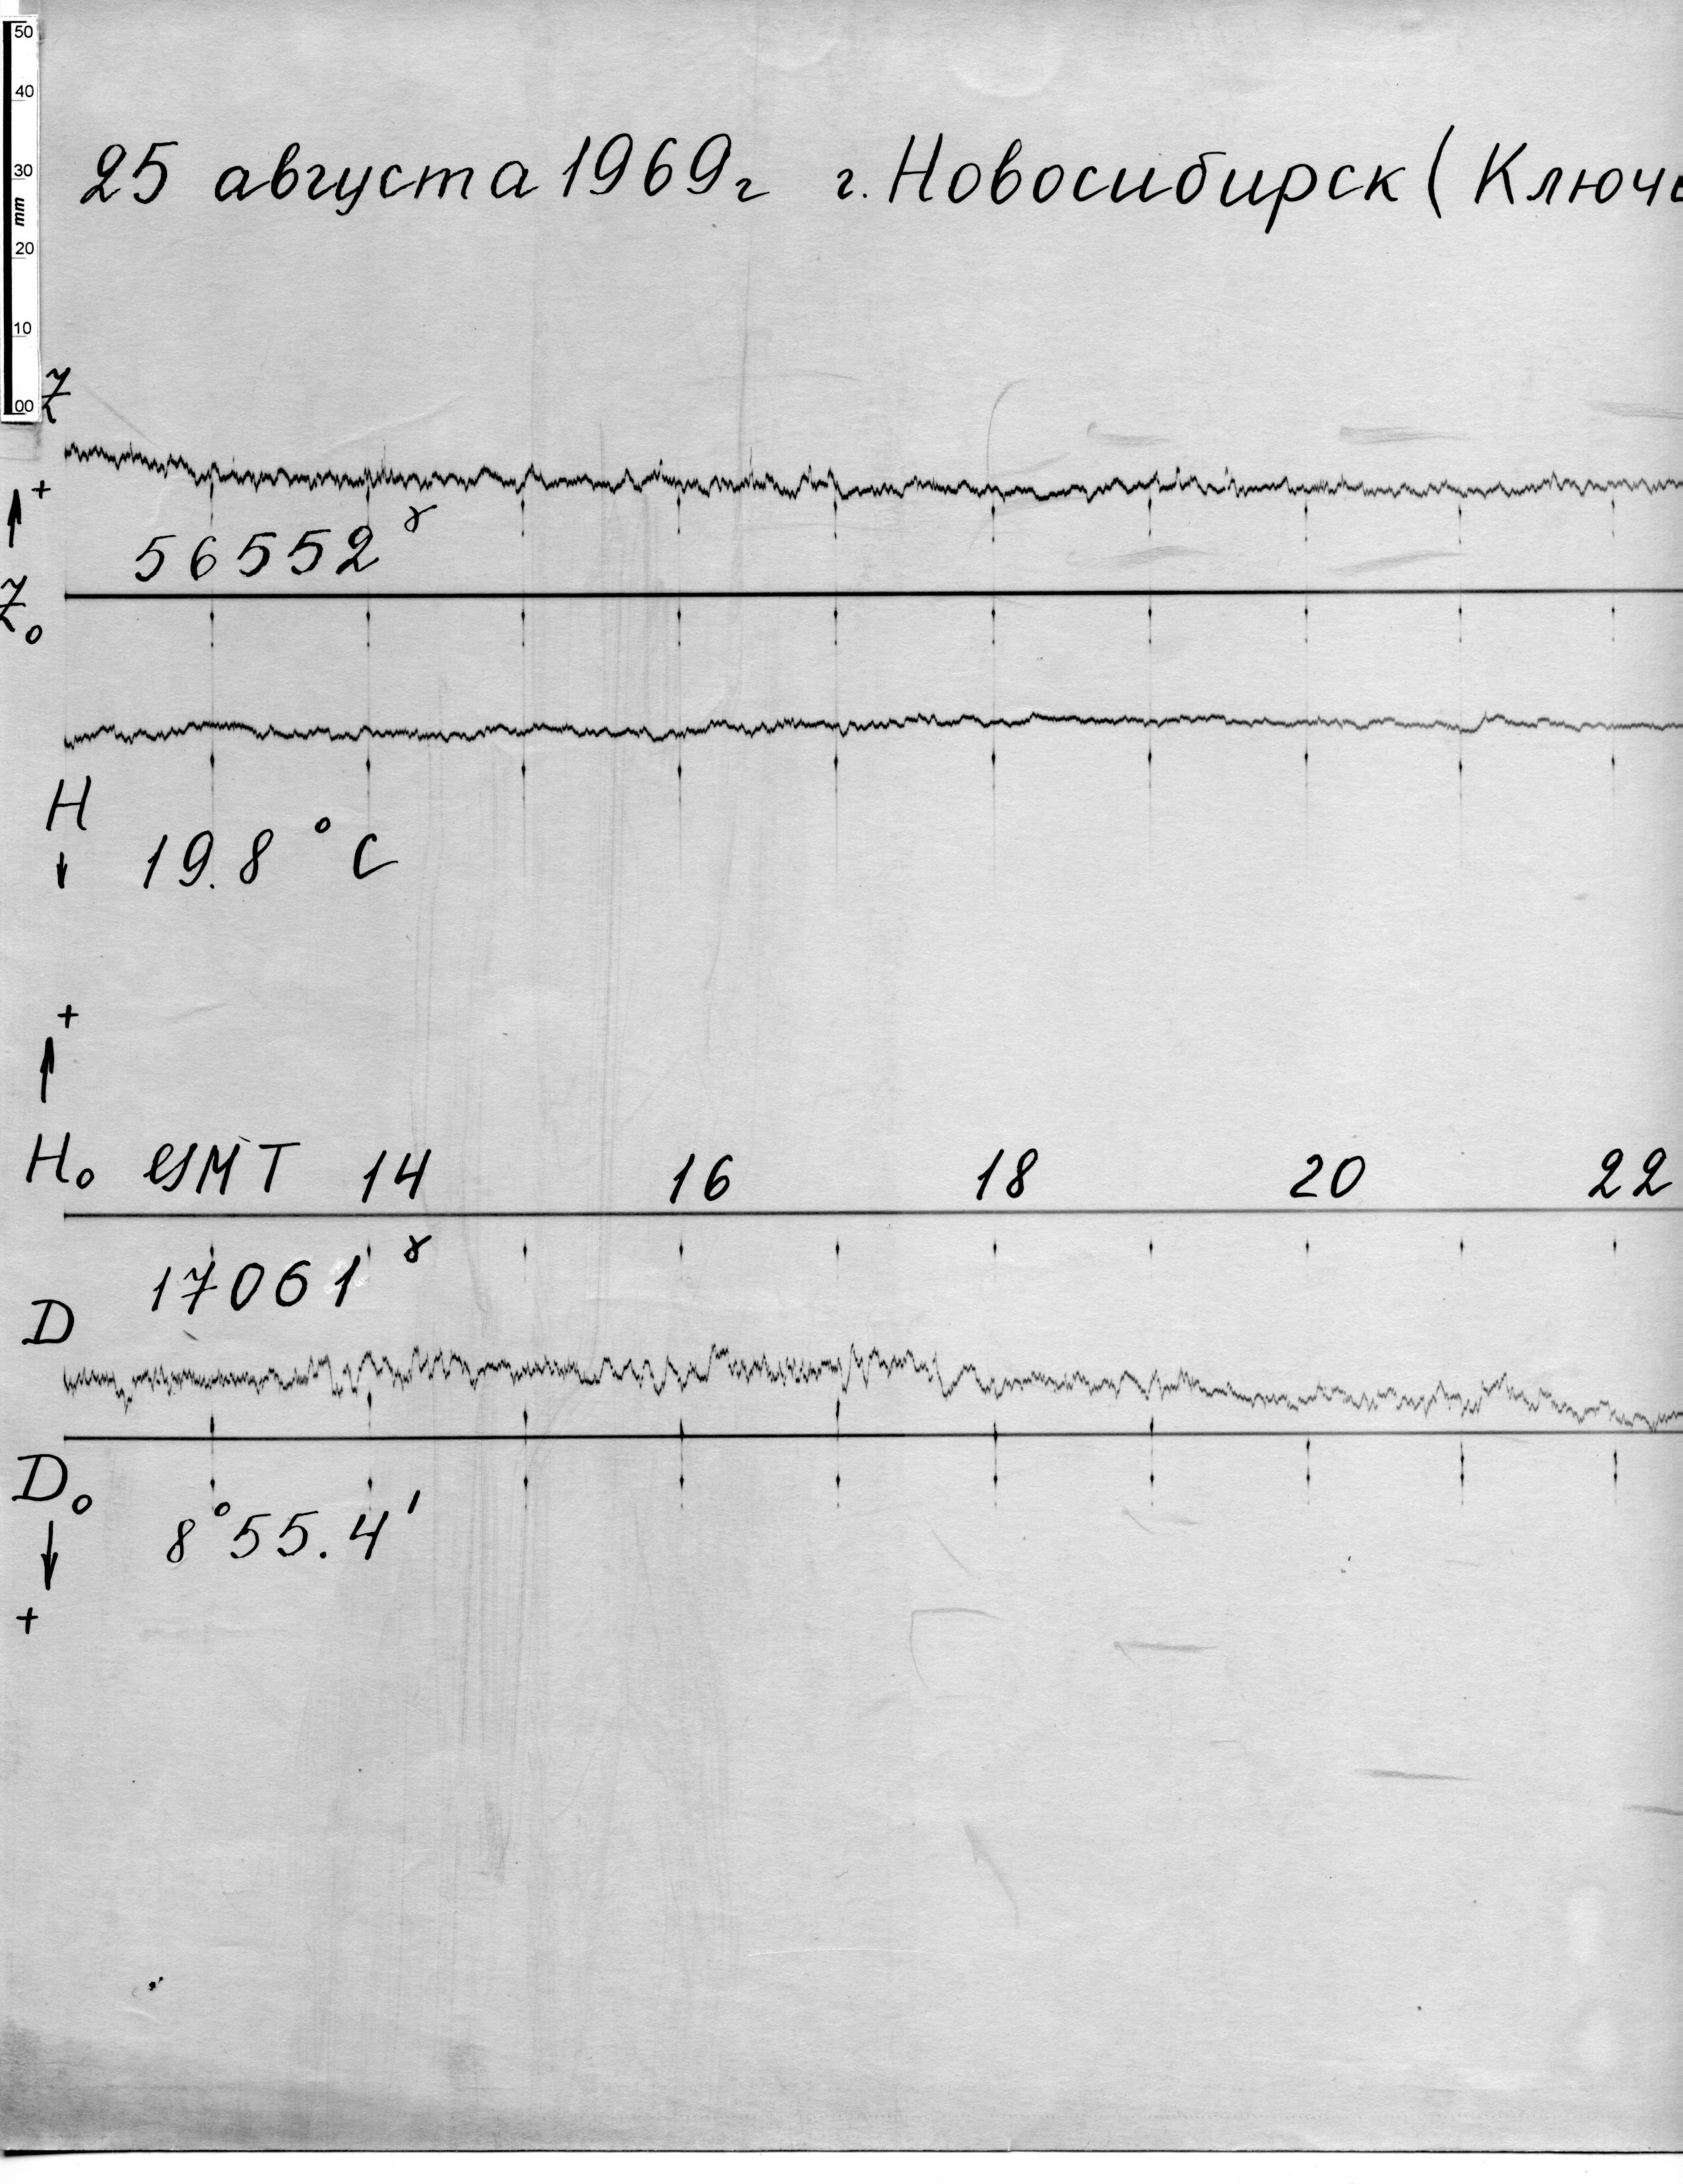 50
40
30
mm
20
10
00
25 августа 1969г г. Новосибирск (Ключ
Z
+
56552 γ
Z₀
H
19.8 °C
+
H₀ GMT 14 16 18 20 22
17061 γ
D
D₀
8°55.4'
+